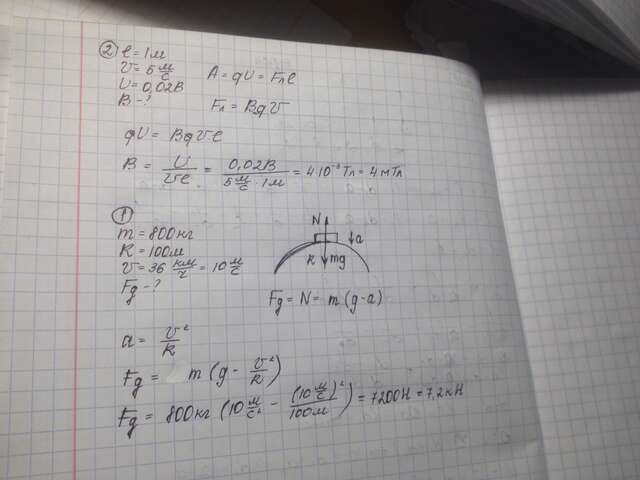 ② ℓ = 1м
υ = 5 м/с
U = 0,02В
B - ?
A = qU = Fлℓ
Fл = Bqυ
qU = Bqυℓ
B = U/υℓ = 0,02В/(5 м/с · 1м) = 4·10⁻³ Тл = 4 мТл
① m = 800кг
R = 100м
υ = 36 км/ч = 10 м/с
Fg - ?
N
a
R
mg
Fg = N = m(g-a)
a = υ²/R
Fg = m(g - υ²/R)
Fg = 800кг (10 м/с² - (10 м/с)²/100м) = 7200Н = 7,2кН